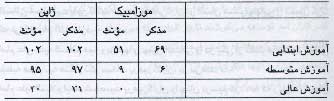 موزامبیک ژاپن
مذکر مؤنث مذکر مؤنث
آموزش ابتدایی ۶۹ ۵۱ ۱۰۲ ۱۰۲
آموزش متوسطه ۶ ۹ ۹۷ ۹۵
آموزش عالی ۰ ۰ ۳۱ ۲۰